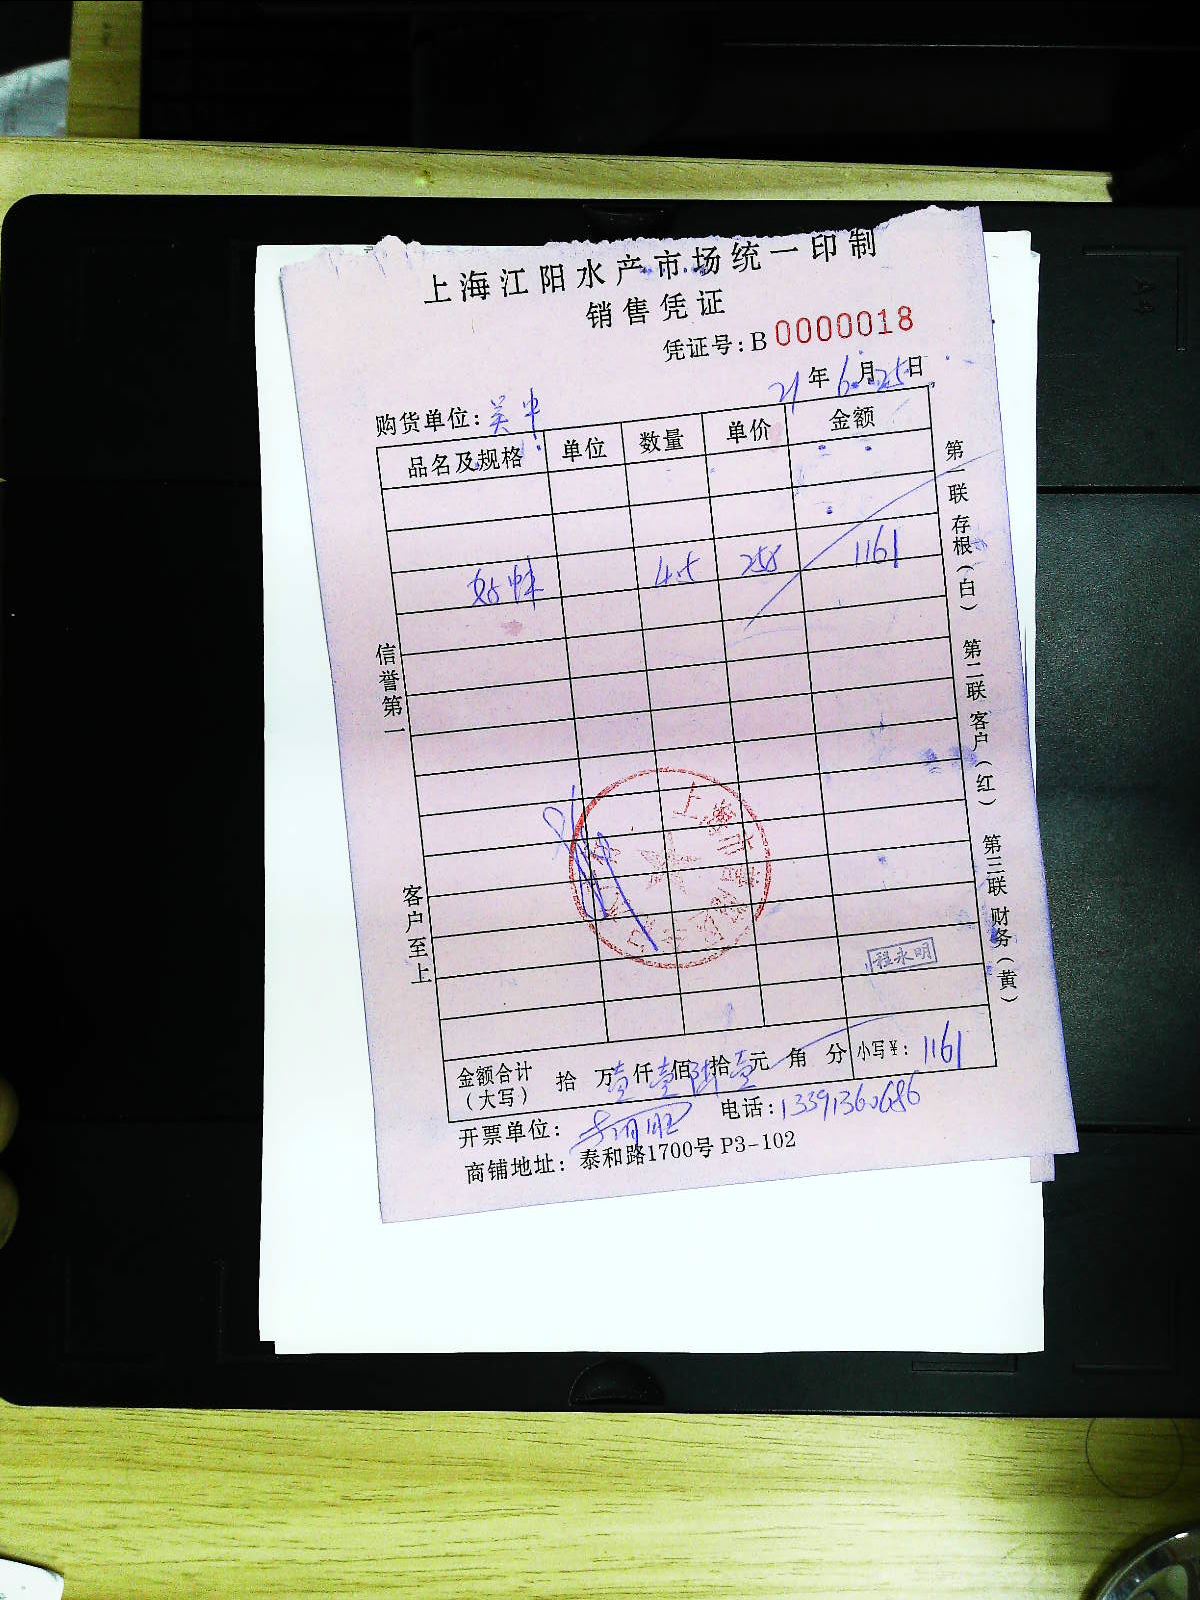 上海江阳水产市场统一印制
销售凭证
凭证号:B 0000018
21年6月25日
购货单位:吴中
品名及规格 单位 数量 单价 金额
4.5 258 1161
信誉第一
客户至上
第一联 存根(白) 第二联 客户(红) 第三联 财务(黄)
上海市
程永明
金额合计(大写) 拾 万壹仟壹佰陆拾壹元 角 分 小写¥: 1161
开票单位: 电话:13391360686
商铺地址: 泰和路1700号 P3-102